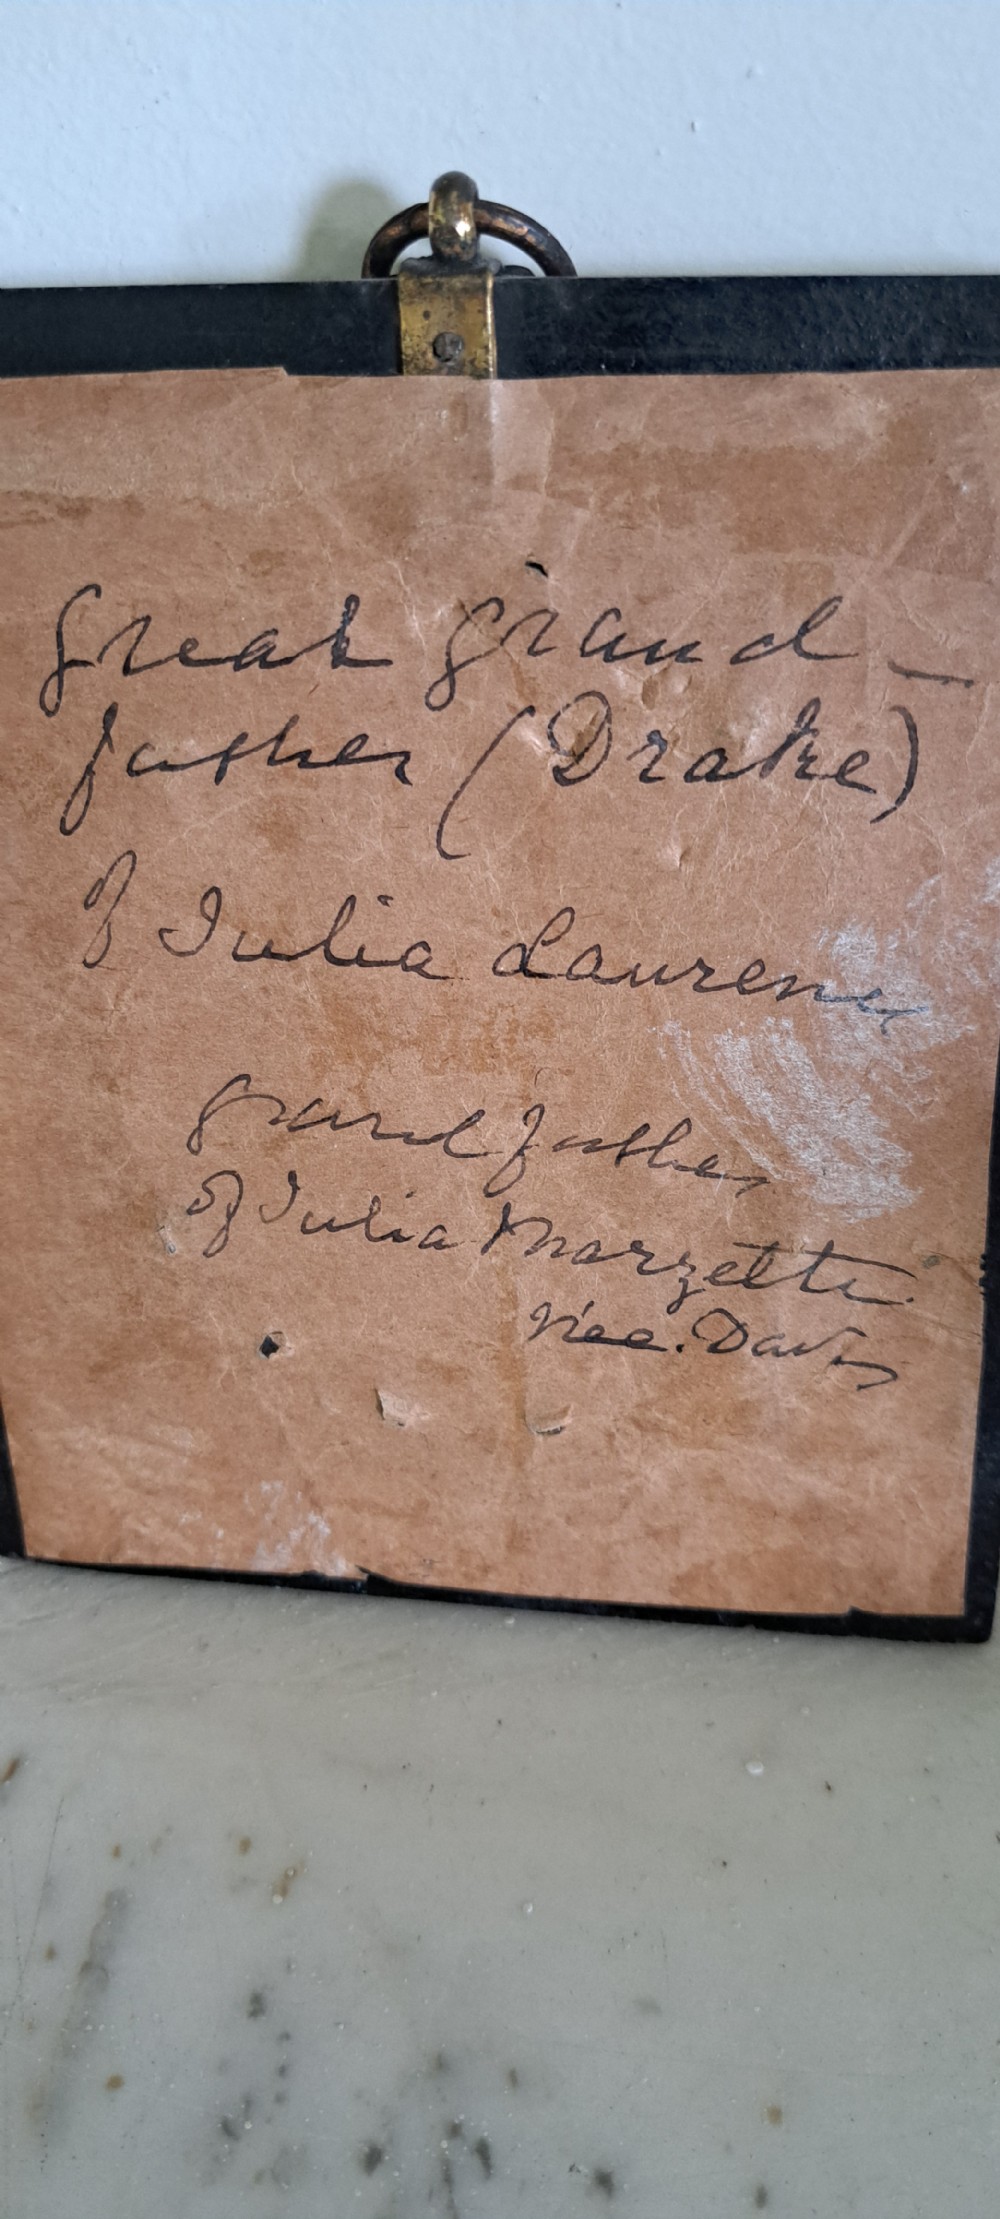 great grand -
father (Drake)
of Julia Laurence
grandfather
of Julia Marzetti
née. Davis